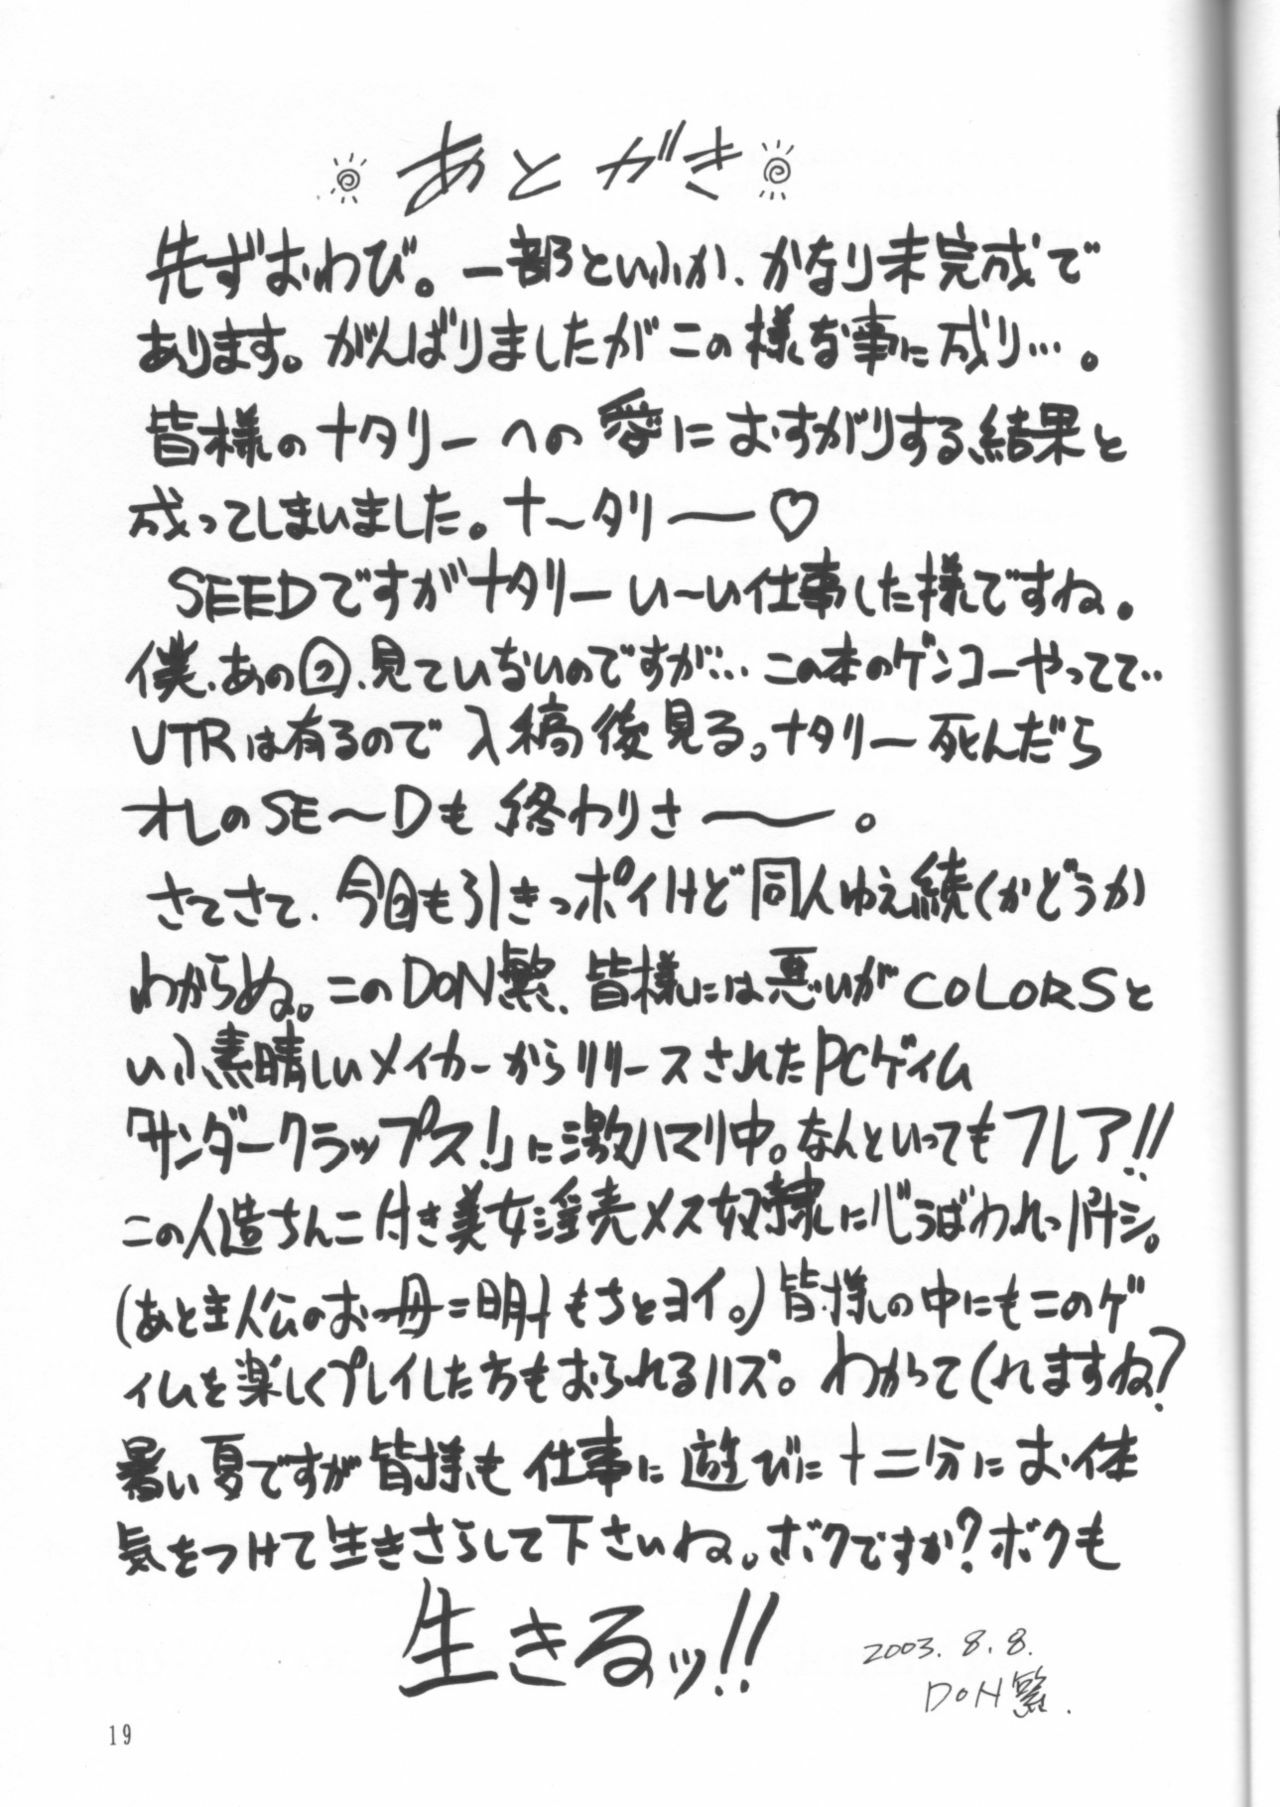 あとがき
先ずおわび。一部といふか、かなり未完成で
あります。がんばりましたがこの様な事に成り…。
皆様のナタリーへの愛におすがりする結果と
成ってしまいました。ナ〜タリ――♡
SEEDですがナタリーい〜い仕事した様ですね。
僕、あの回、見ていないのですが… この本のゲンコーやってて‥
VTRは有るので入稿後見る。ナタリー死んだら
オレのSE〜Dも終わりさ――。
さてさて、今回も引きっポイけど同人ゆえ続くかどうか
わからぬ。このDON繁、皆様には悪いがCOLORSと
いふ素晴しいメイカーからリリースされたPCゲイム
「サンダークラップス!」に激ハマリ中。なんといってもフレア!!
この人造ちんこ付き美女淫売メス奴隷に心うばわれっパナシ。
(あと主人公のお母=明日もちとヨイ。)皆様の中にもこのゲ
イムを楽しくプレイした方もおられるハズ。わかってくれますね?
暑い夏ですが皆様も仕事に遊びに十二分にお体
気をつけて生きさらして下さいね。ボクですか?ボクも
生きるッ!!
2003.8.8.
DON繁.
19